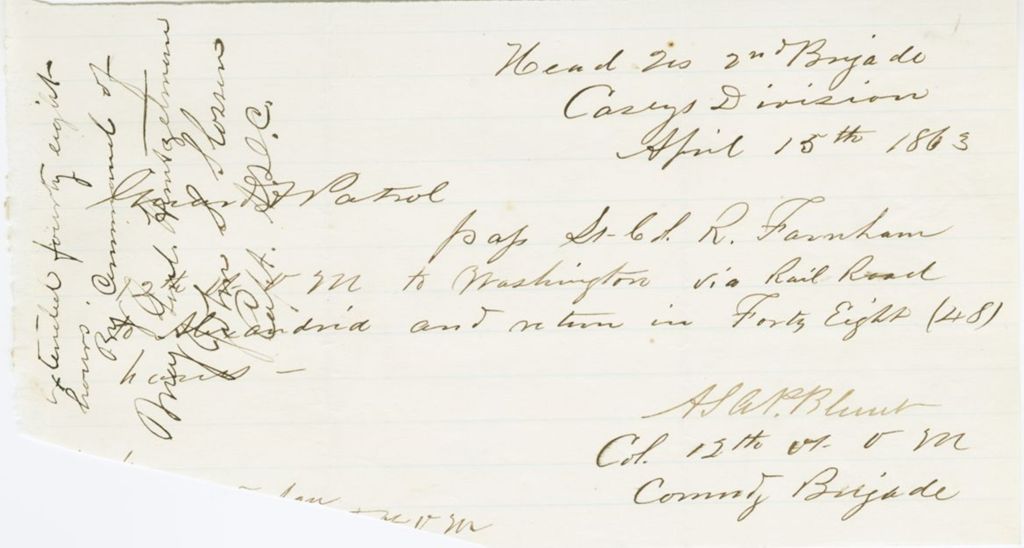 Head Qrs 2nd Brigade
Caseys Division
April 15th 1863
Guard & Patrol
pass Lt-Col. R. Farnham
V M to Washington via Rail Road
& Alexandria and return in Forty Eight (48)
hours -
A P Blunt
Col. 12th Vt. V M
Comndg Brigade
V M
extended fourty eight
hours.
By Command of
Maj Genl. Heintzelman
Capt. A.D.C.